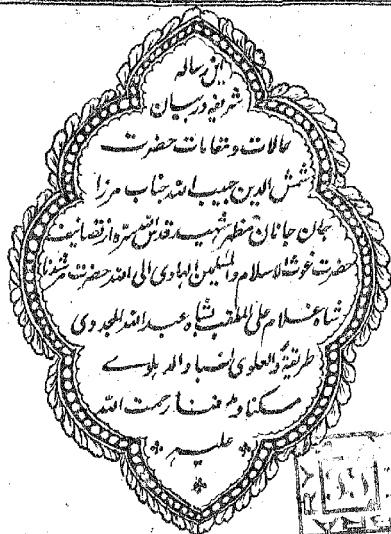 این رساله
شریفه در بیان
حالات و مقامات حضرت
شمس الدین حبیب الله جناب مرزا
جان جانان مظهر شهید قدس الله سره از تصانیف
حضرت غوث الاسلام والمسلمین الهادی الی الله حضرت مرشدنا
شاه غلام علی الملقب بشاه عبد الله المجددی
طریقة والعلوی نسبا والدهلوی
مسکنا و رحمت الله
علیهم